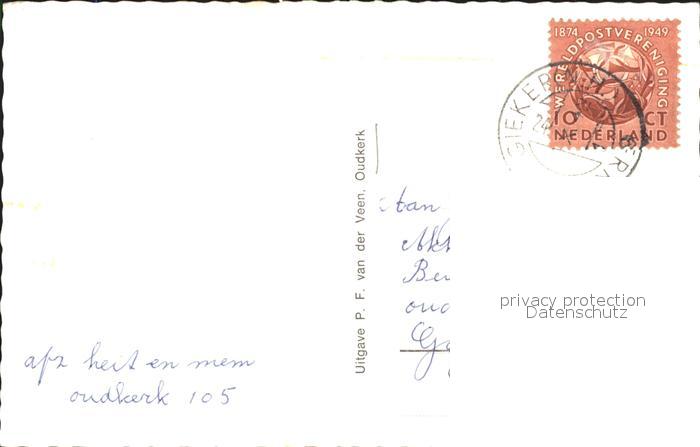 1874 1949
WERELDPOSTVERENIGING
10 CT
NEDERLAND
GIEKERK
Uitgave P. F. van der Veen, Oudkerk
Aan
privacy protection
Datenschutz
afz heit en mem
oudkerk 105